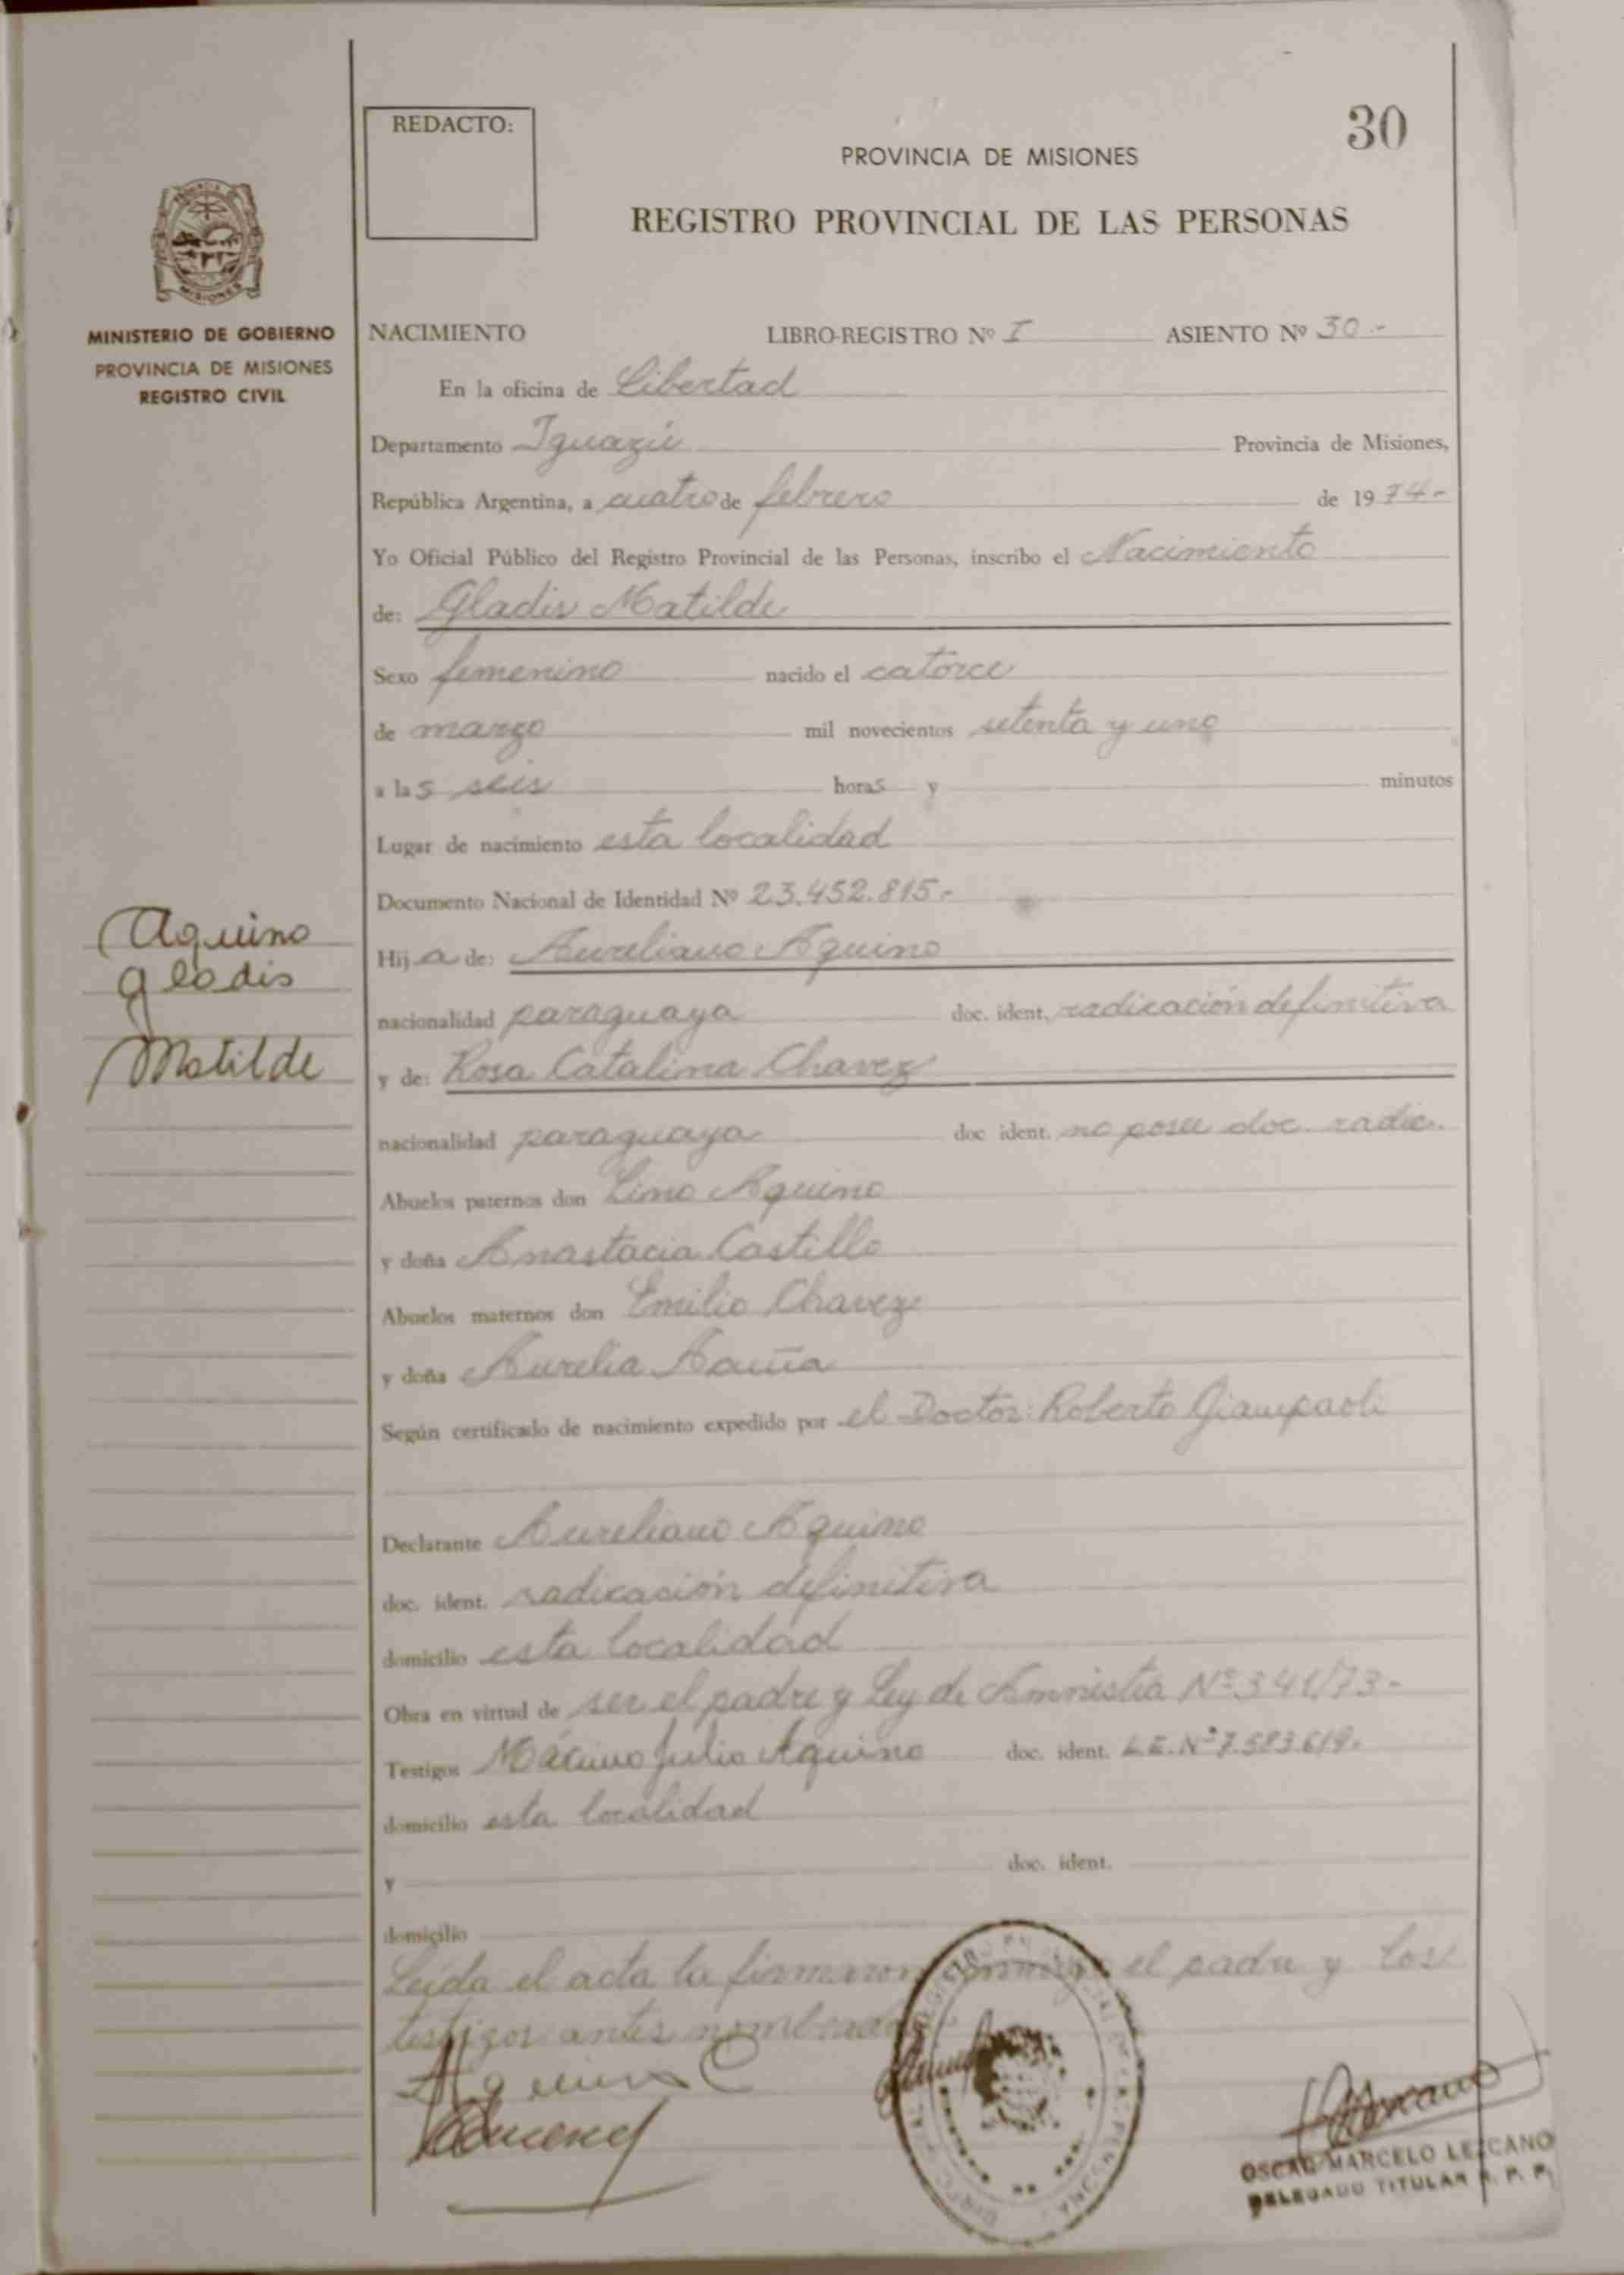 30
REDACTO:
PROVINCIA DE MISIONES
REGISTRO PROVINCIAL DE LAS PERSONAS
MISIONES
MINISTERIO DE GOBIERNO
PROVINCIA DE MISIONES
REGISTRO CIVIL
NACIMIENTO LIBRO-REGISTRO Nº I ASIENTO Nº 30.-
En la oficina de Libertad
Departamento Iguazú Provincia de Misiones,
República Argentina, a cuatro de febrero de 1974.-
Yo Oficial Público del Registro Provincial de las Personas, inscribo el Nacimiento
de: Gladis Matilde
Sexo femenino nacido el catorce
de marzo mil novecientos setenta y uno
a las seis horas y minutos
Lugar de nacimiento esta localidad
Documento Nacional de Identidad Nº 23.452.815.-
Aquino
Gladis
Matilde
Hija de: Aureliano Aquino
nacionalidad paraguaya doc. ident. radicación definitiva
y de: Rosa Catalina Chavez
nacionalidad paraguaya doc ident. no posee doc. radic.
Abuelos paternos don Lino Aquino
y doña Anastacia Castillo
Abuelos maternos don Emilio Chavez
y doña Aurelia Acuña
Según certificado de nacimiento expedido por el Doctor: Roberto Giampaoli
Declarante Aureliano Aquino
doc. ident. radicación definitiva
domicilio esta localidad
Obra en virtud de ser el padre y Ley de Amnistía Nº 341/73.-
Testigos Máximo Julio Aquino doc. ident. L.E. Nº 7.583.619.
domicilio esta localidad
y doc. ident.
domicilio
Leída el acta la firmaron conmigo el padre y los
testigos antes nombrados
OSCAR MARCELO LEZCANO
DELEGADO TITULAR R. P. P.